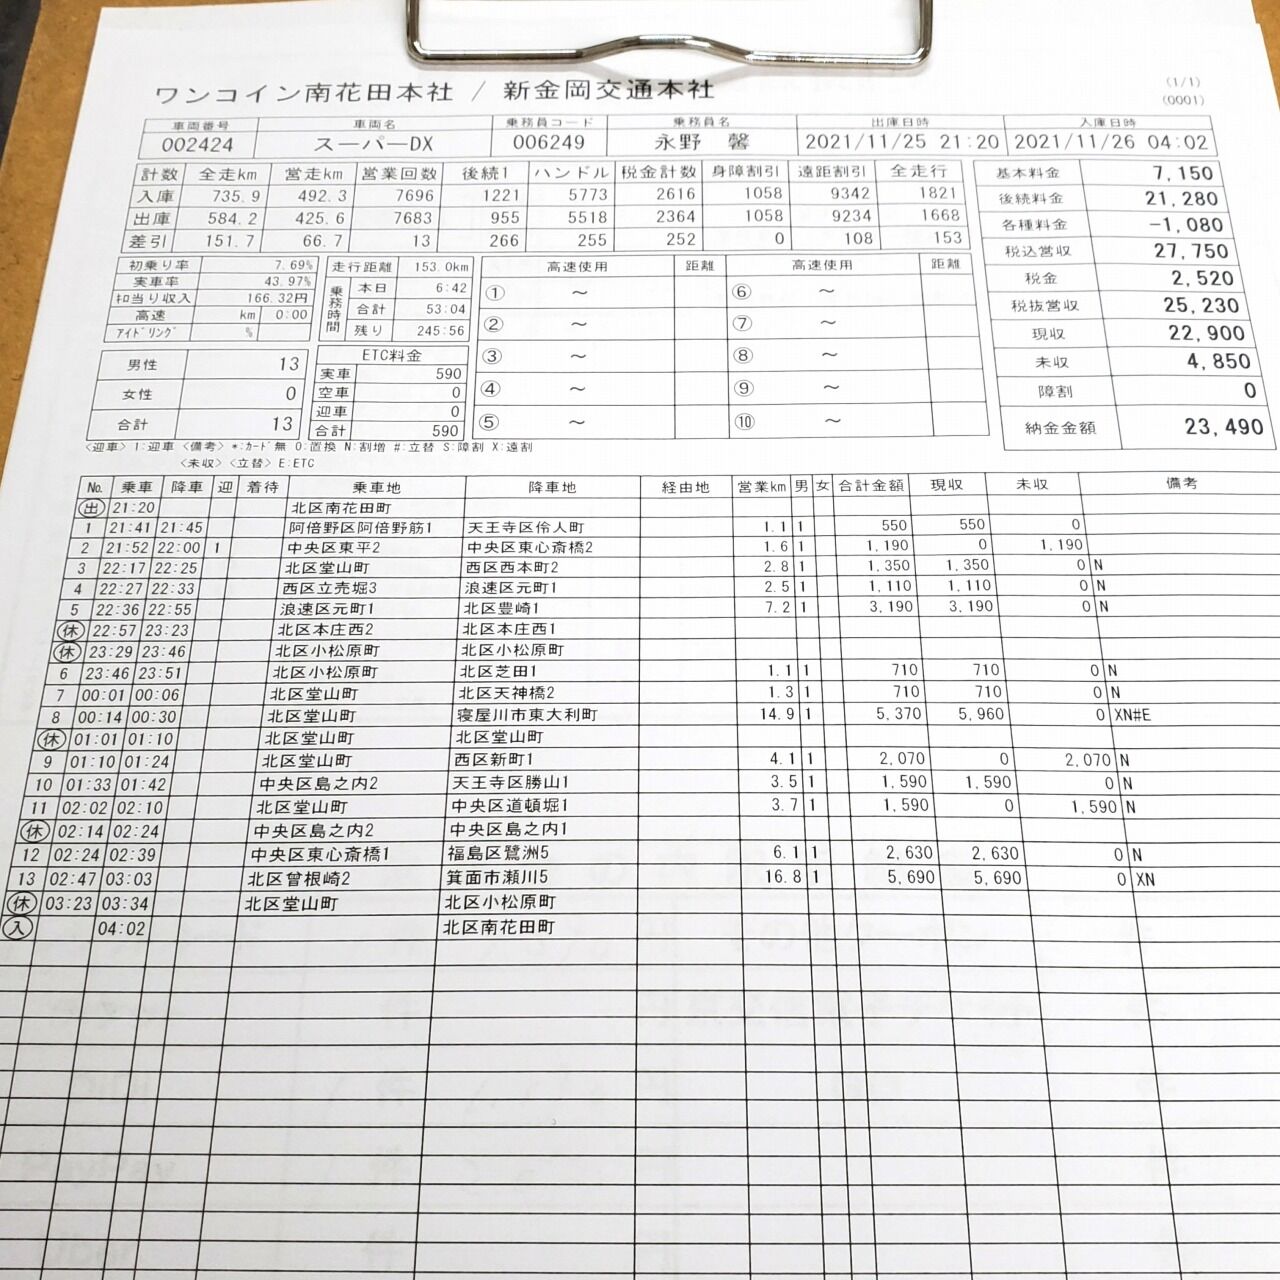 ワンコイン南花田本社 / 新金岡交通本社
(1/1)
(0001)
車両番号 車両名 乗務員コード 乗務員名 出庫日時 入庫日時
002424 スーパーDX 006249 永野 馨 2021/11/25 21:20 2021/11/26 04:02
計数 全走km 営走km 営業回数 後続1 ハンドル 税金計数 身障割引 遠距割引 全走行
入庫 735.9 492.3 7696 1221 5773 2616 1058 9342 1821
出庫 584.2 425.6 7683 955 5518 2364 1058 9234 1668
差引 151.7 66.7 13 266 255 252 0 108 153
基本料金 7,150
後続料金 21,280
各種料金 -1,080
税込営収 27,750
税金 2,520
税抜営収 25,230
現収 22,900
未収 4,850
障割 0
納金金額 23,490
初乗り率 7.69%
実車率 43.97%
ｷﾛ当り収入 166.32円
高速 km 0:00
ｱｲﾄﾞﾘﾝｸﾞ %
走行距離 153.0km
乗務時間
本日 6:42
合計 53:04
残り 245:56
高速使用 距離 高速使用 距離
① ～ ⑥ ～
② ～ ⑦ ～
③ ～ ⑧ ～
④ ～ ⑨ ～
⑤ ～ ⑩ ～
男性 13
女性 0
合計 13
ETC料金
実車 590
空車 0
迎車 0
合計 590
<迎車> 1:迎車 <備考> *:ｶｰﾄﾞ無 0:置換 N:割増 #:立替 S:障割 X:遠割
<未収> <立替> E:ETC
No. 乗車 降車 迎 着待 乗車地 降車地 経由地 営業km 男 女 合計金額 現収 未収 備考
出 21:20 北区南花田町
1 21:41 21:45 阿倍野区阿倍野筋1 天王寺区伶人町 1.1 1 550 550 0
2 21:52 22:00 1 中央区東平2 中央区東心斎橋2 1.6 1 1,190 0 1,190
3 22:17 22:25 北区堂山町 西区西本町2 2.8 1 1,350 1,350 0 N
4 22:27 22:33 西区立売堀3 浪速区元町1 2.5 1 1,110 1,110 0 N
5 22:36 22:55 浪速区元町1 北区豊崎1 7.2 1 3,190 3,190 0 N
休 22:57 23:23 北区本庄西2 北区本庄西1
休 23:29 23:46 北区小松原町 北区小松原町
6 23:46 23:51 北区小松原町 北区芝田1 1.1 1 710 710 0 N
7 00:01 00:06 北区堂山町 北区天神橋2 1.3 1 710 710 0 N
8 00:14 00:30 北区堂山町 寝屋川市東大利町 14.9 1 5,370 5,960 0 XN#E
休 01:01 01:10 北区堂山町 北区堂山町
9 01:10 01:24 北区堂山町 西区新町1 4.1 1 2,070 0 2,070 N
10 01:33 01:42 中央区島之内2 天王寺区勝山1 3.5 1 1,590 1,590 0 N
11 02:02 02:10 北区堂山町 中央区道頓堀1 3.7 1 1,590 0 1,590 N
休 02:14 02:24 中央区島之内2 中央区島之内1
12 02:24 02:39 中央区東心斎橋1 福島区鷺洲5 6.1 1 2,630 2,630 0 N
13 02:47 03:03 北区曾根崎2 箕面市瀬川5 16.8 1 5,690 5,690 0 XN
休 03:23 03:34 北区堂山町 北区小松原町
入 04:02 北区南花田町